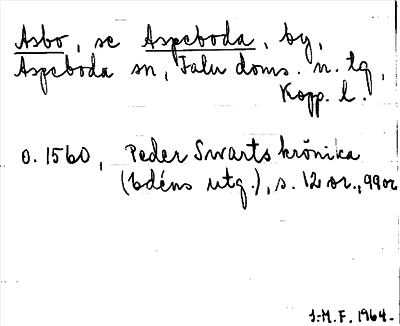 Asbo, se Aspeboda, by,
Aspeboda sn, Falu doms. n. tg,
Kopp. l.
o. 1560, Peder Swarts krönika
(Edéns utg.), s. 12 or., 99 or
J.-M. F. 1964.